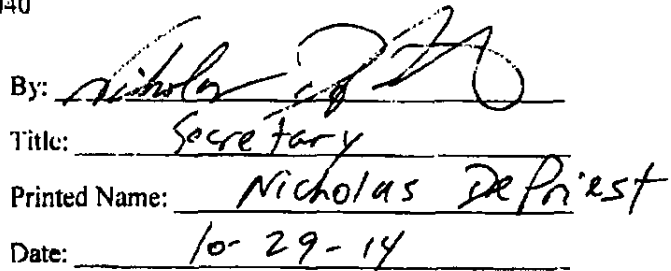 By: Nicholas
Title: Secretary
Printed Name: Nicholas DePriest
Date: 10-29-14